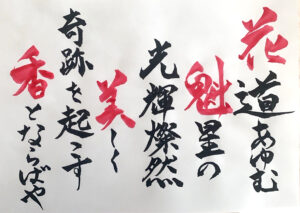 花道あゆむ
魁星の
光輝燦然
美しく
奇跡を起こす
香とならばや